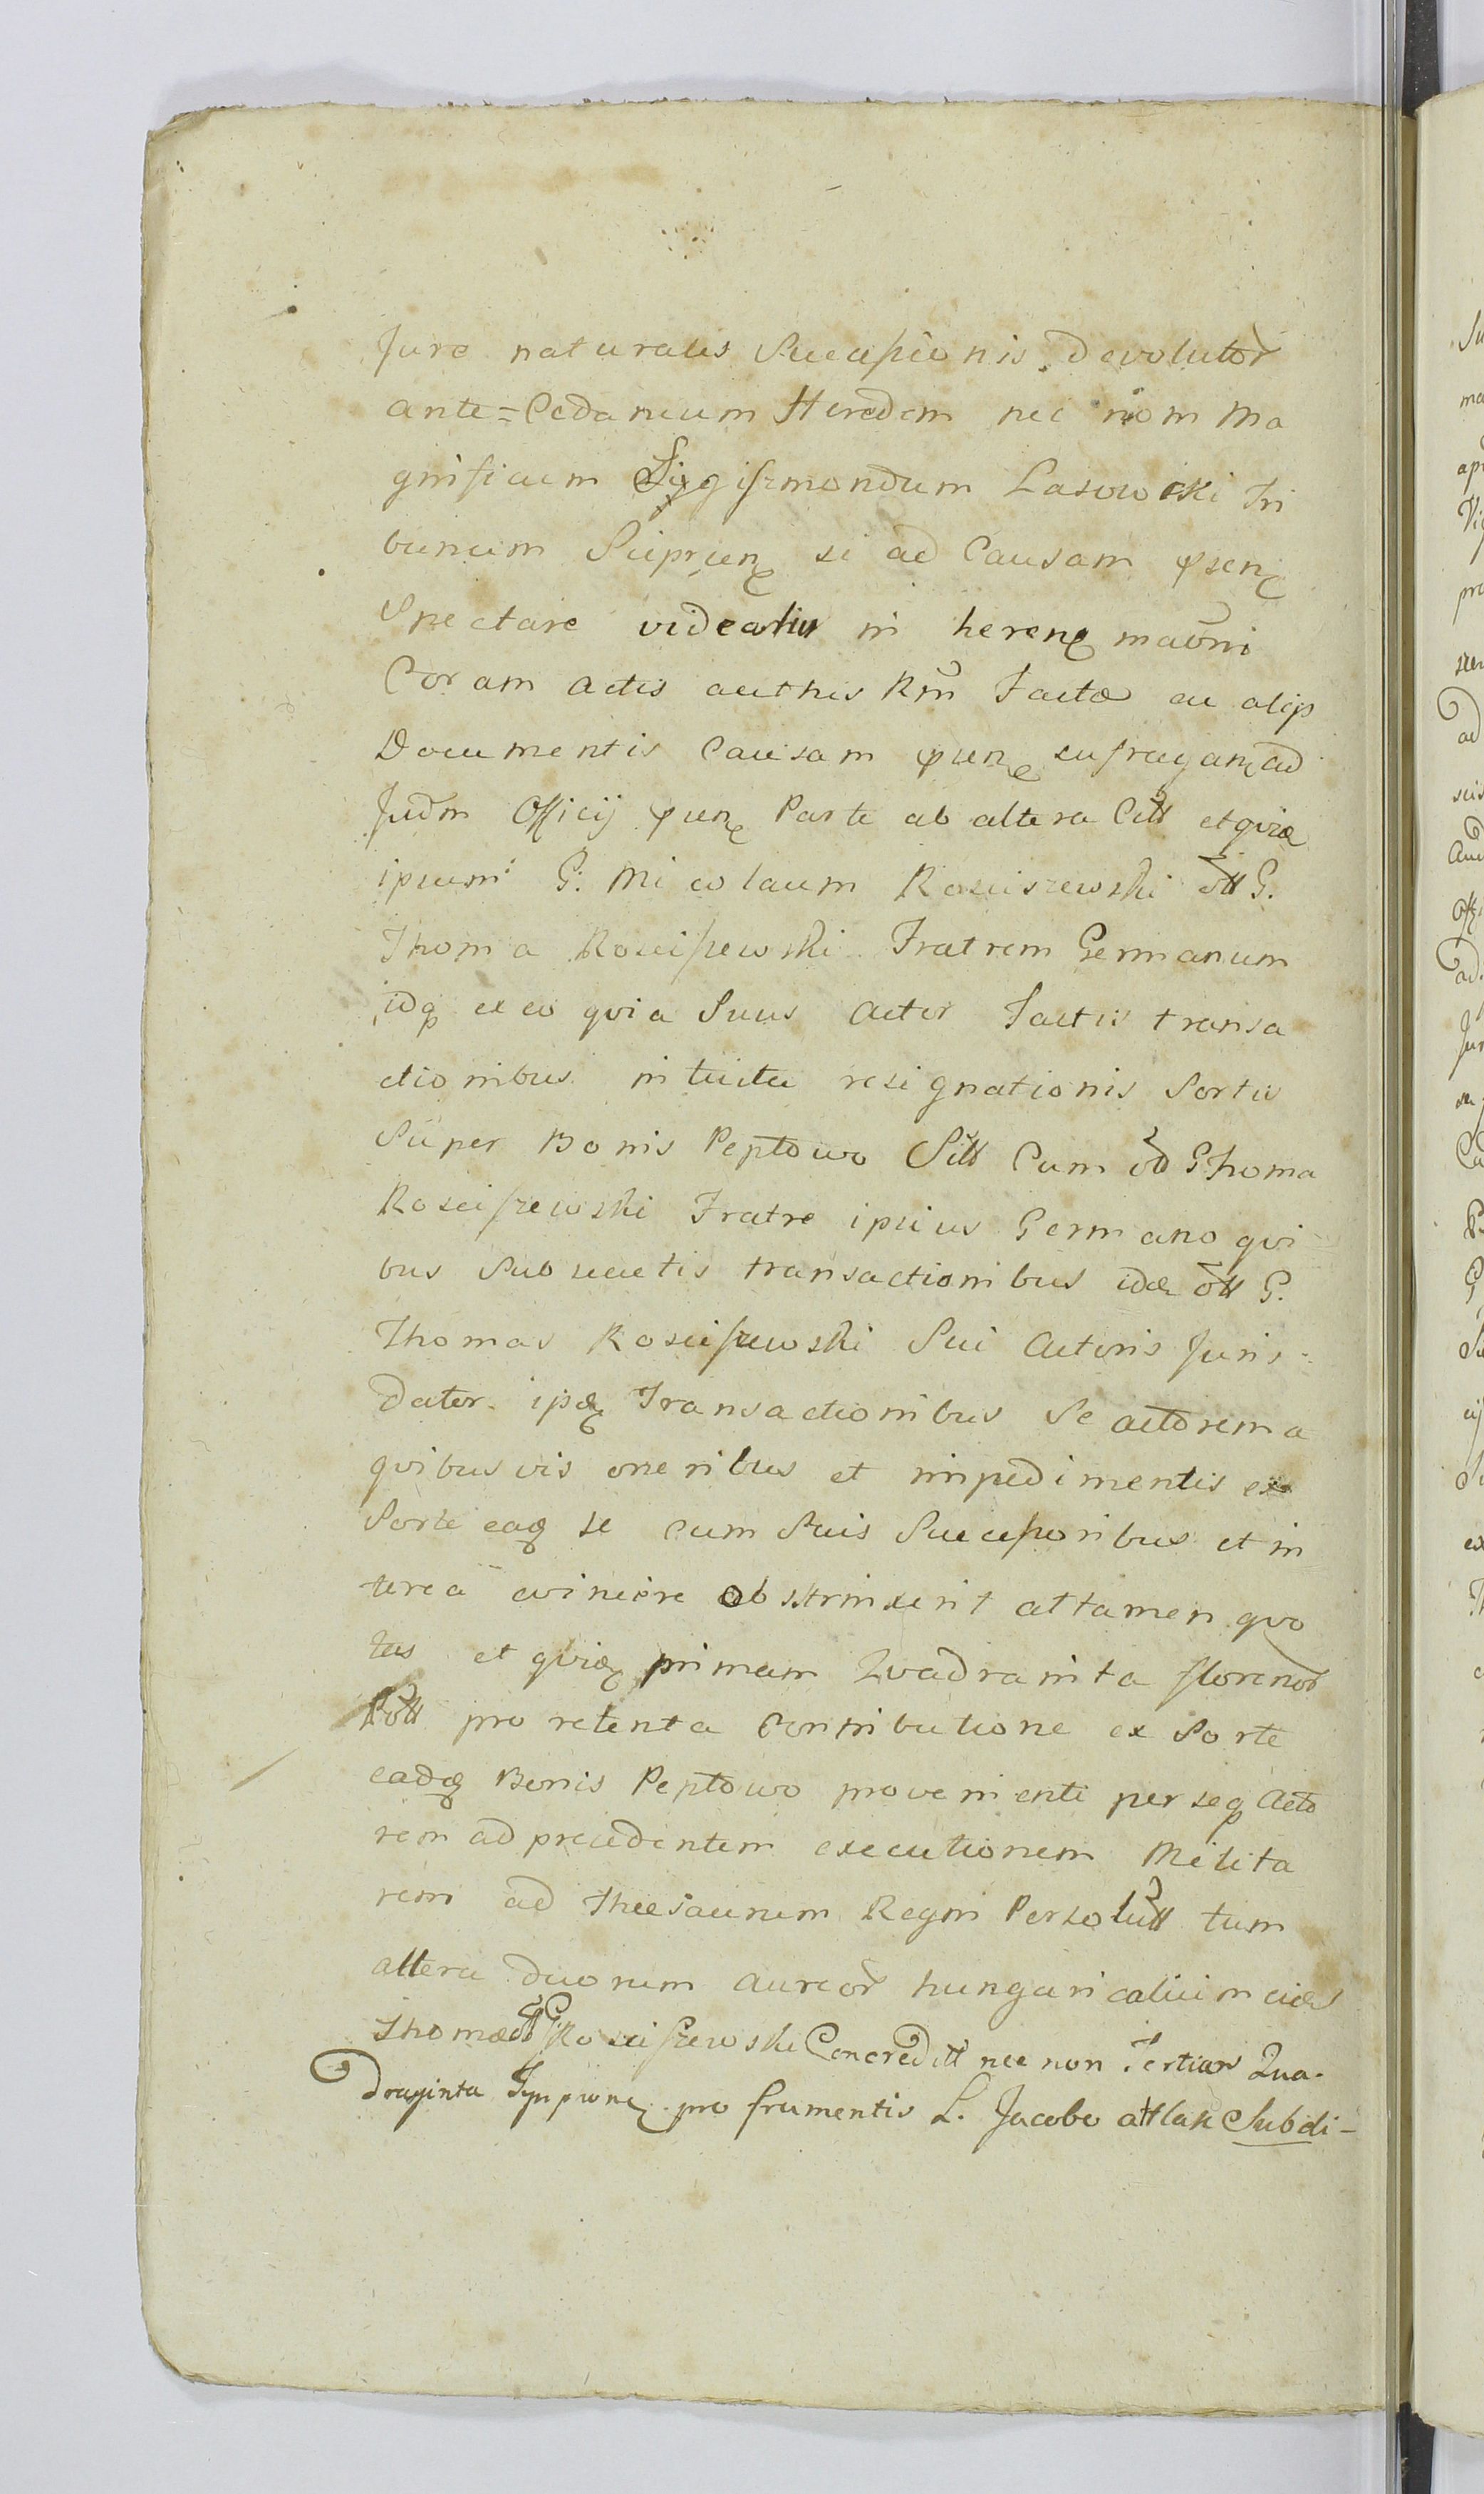 Jure naturalis Sucessionis Devolutor
ante=Cedaneum Heredem nec non Ma
gnificum Sigismondum Lasowski Tri
bunum
Spectare videatur in heren mauni
Coram actis authis Rm Facta ac alijs
Documentis Causam sufragan ad
Judm Officij Parte ab altera Citt et quia
ipsum G. Micolaum Rosciszewski ott G.
Thoma Rosciszewski Fratrem Germanum
idq ex eo qvia Suus actor Factis transa
ctionibus intuitu resignationis Sortis
Super Bonis Peptowo Sitt Cum od G Thoma
Rosciszewski Fratre ipsius Germano qvi
bus Subsecutis transactionibus ott G.
Thomas Rosciszewski Sui Actoris Juris=
dator Transactionibus Se actorem a
qvibusvis oneribus et impedimentis ex
Sorte eaq se cum Suis Sucessoribus et in
terea evincere obstrinxerit attamen qvo
tas et primam Qvadraginta florenor
Poll pro retenta Contributione ex Sorte
eadq Bonis Peptowo provenienti per seq Acto
rem ad precedentem executionem Milita
rem ad Theesaurum Regni Persolutt tum
altera duorum aureor hungaricalium
Thomae Rosciszewski Concreditt nec non Tertiar Qua-
draginta pro frumentis L. Jacobo attlak Subdi-